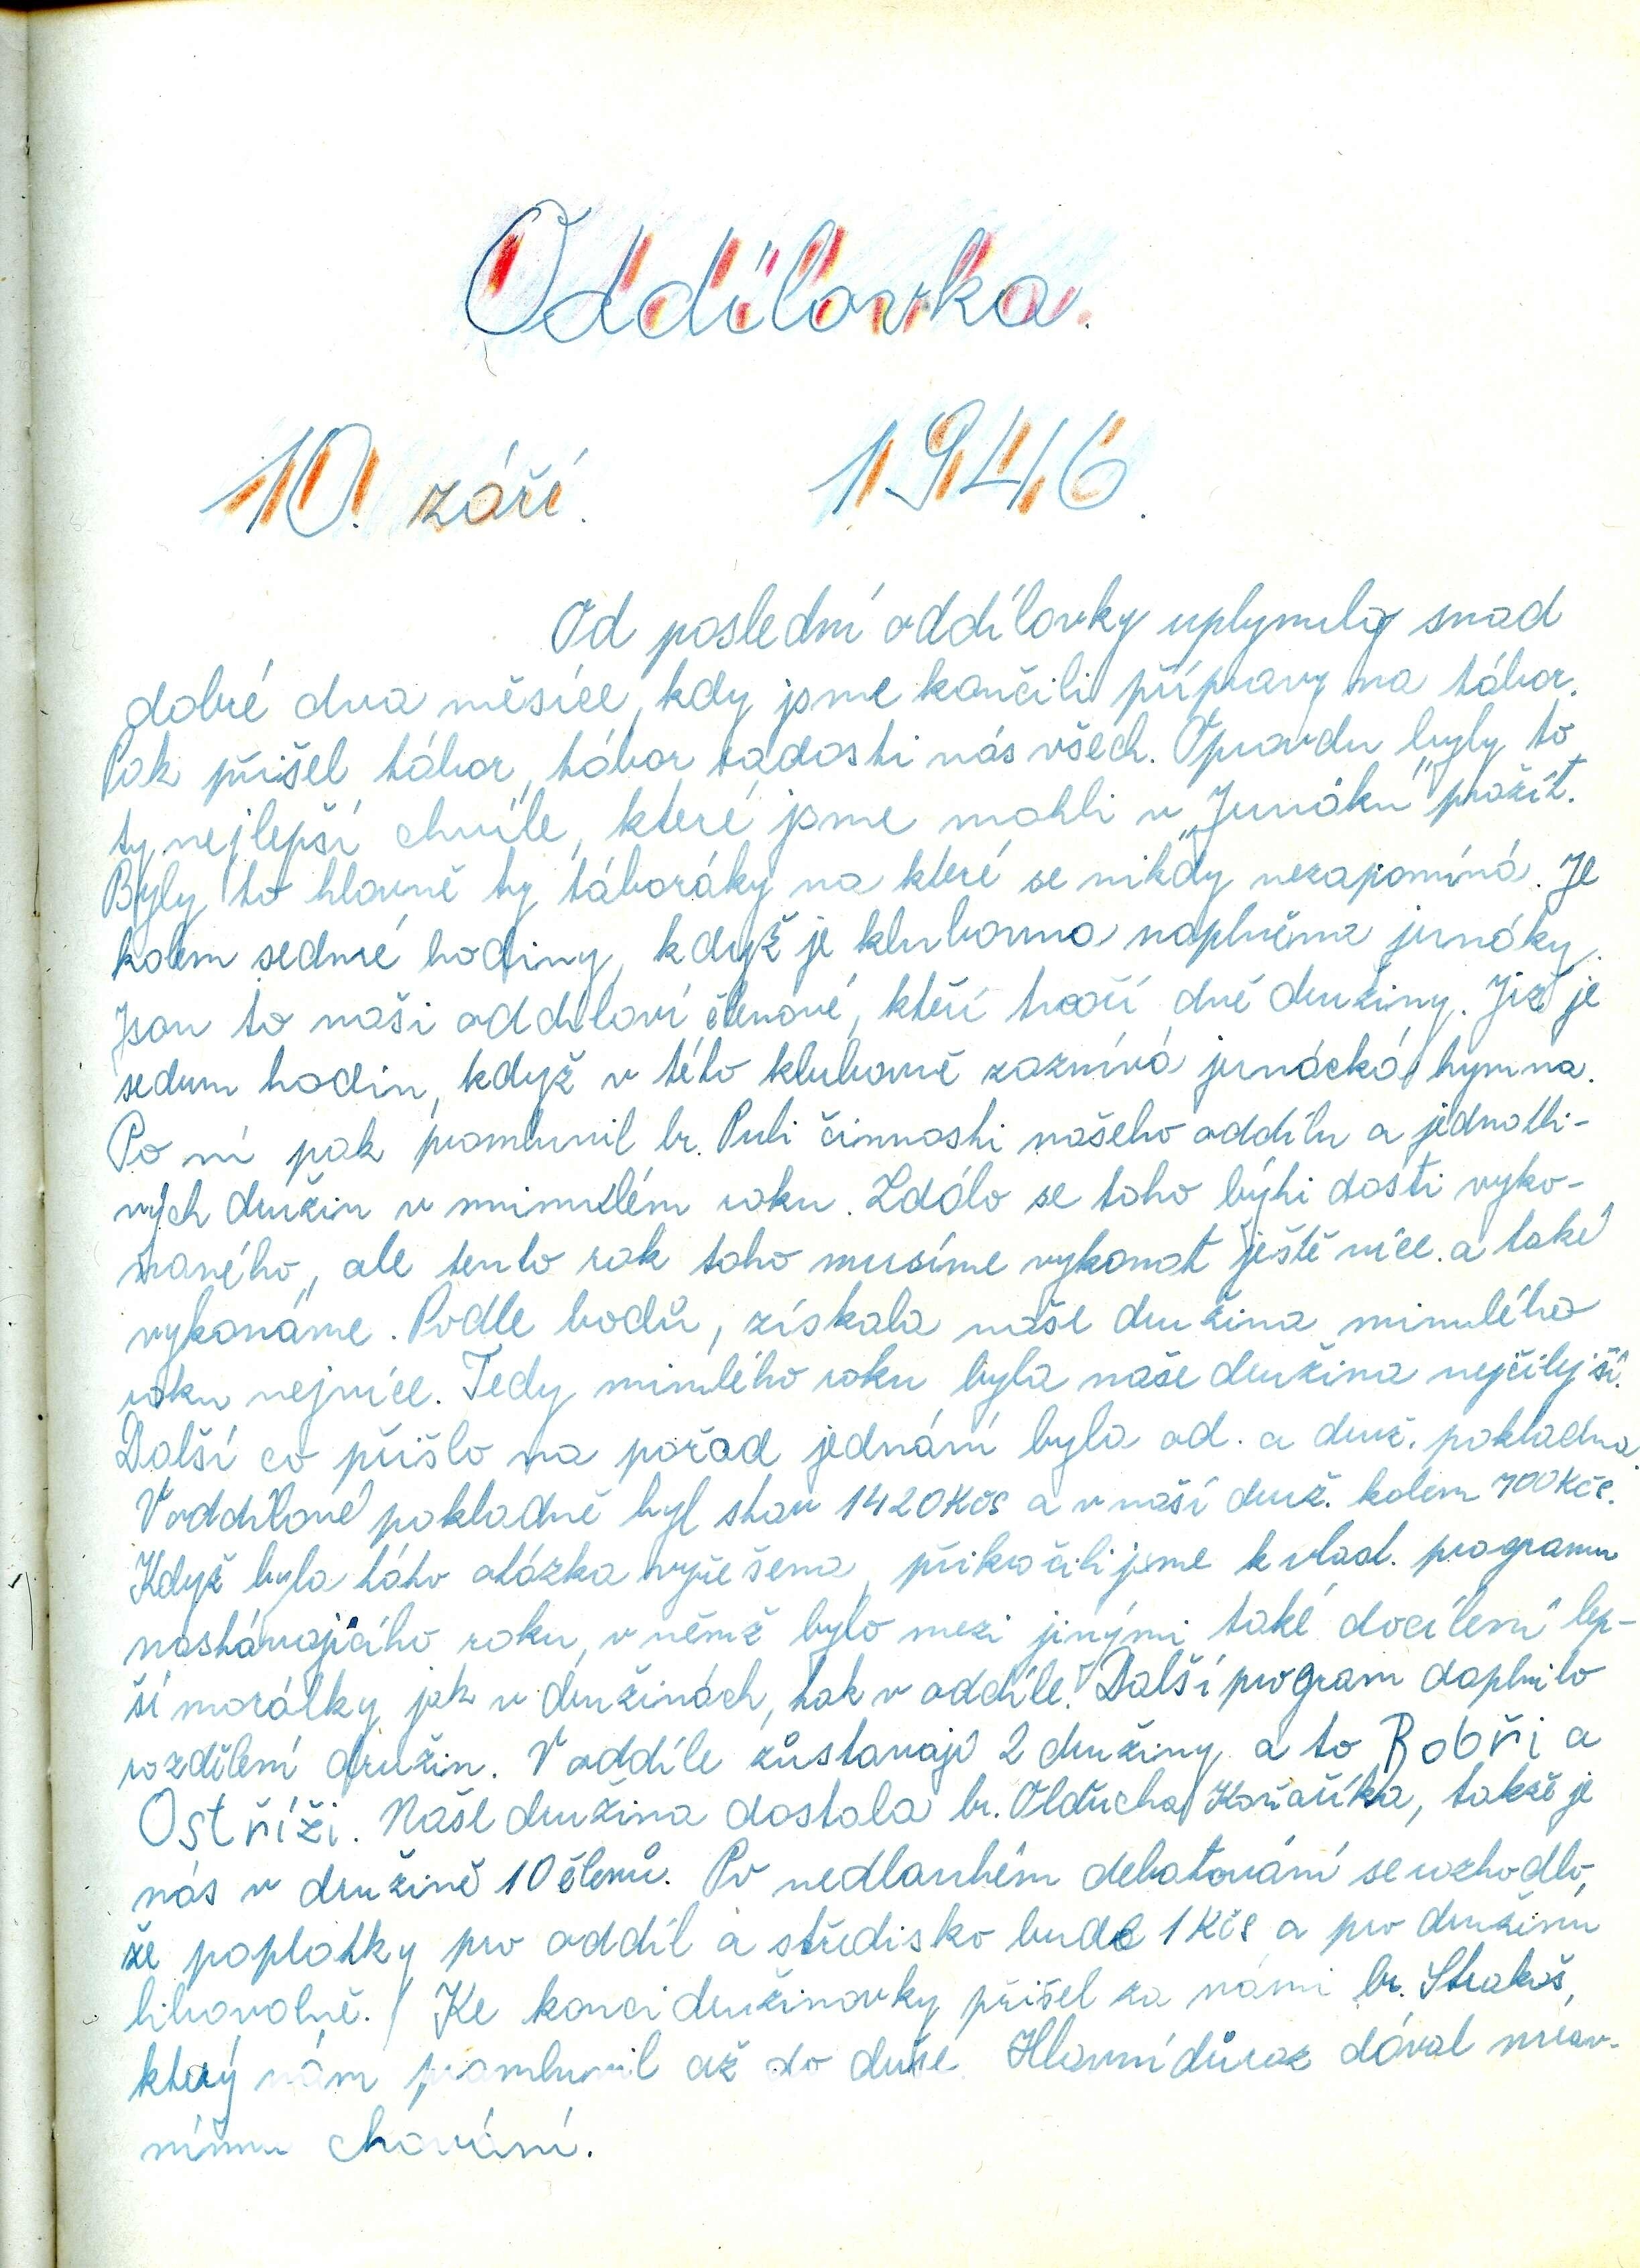 Oddílovka.
10. září. 1946.
Od poslední oddílovky uplynuly snad
dobré dva měsíce, kdy jsme končili přípravy na tábor.
Pak přišel tábor, tábor radosti nás všech. Opravdu byly to
ty nejlepší chvíle, které jsme mohli v „Junáku" prožít.
Byly to hlavně ty táboráky na které se nikdy nezapomíná. Je
kolem sedmé hodiny, když je klubovna naplněna junáky.
Jsou to naši oddíloví členové, kteří tvoří dvě družiny. Již je
sedum hodin, když v této klubovně zaznívá junácká hymna.
Po ní pak promluvil br. Puli činnosti našeho oddílu a jednotli-
vých družin v minulém roku. Zdálo se toho býti dosti vyko-
naného, ale tento rok toho musíme vykonat ještě více. a také
vykonáme. Podle bodů, získala naše družina minulého
roku nejvíce. Tedy minulého roku byla naše družina nejčilejší.
Další co přišlo na pořad jednání byla od. a druž. pokladna.
V oddílové pokladně byl stav 1420 Kčs a v naší druž. kolem 700 Kčs.
Když byla táto otázka vyřešena, přikročili jsme k vlast. programu
nastávajícího roku, v němž bylo mezi jinými také docílení lep-
ší morálky jak v družinách, tak v oddíle. Další program doplnilo
rozdělení družin. V oddíle zůstavají 2 družiny a to Bobři a
Ostříži. Naše družina dostala br. Oldřicha Kovaříka, takže je
nás v družině 10 členů. Po nedlouhém debatování se rozhodlo,
že poplatky pro oddíl a středisko bude 1 Kčs a pro družinu
libovolně. / Ke konci družinovky přišel za námi br. Strakoš,
který nám promluvil až do duše. Hlavní důraz dával mrav-
nímu chování.